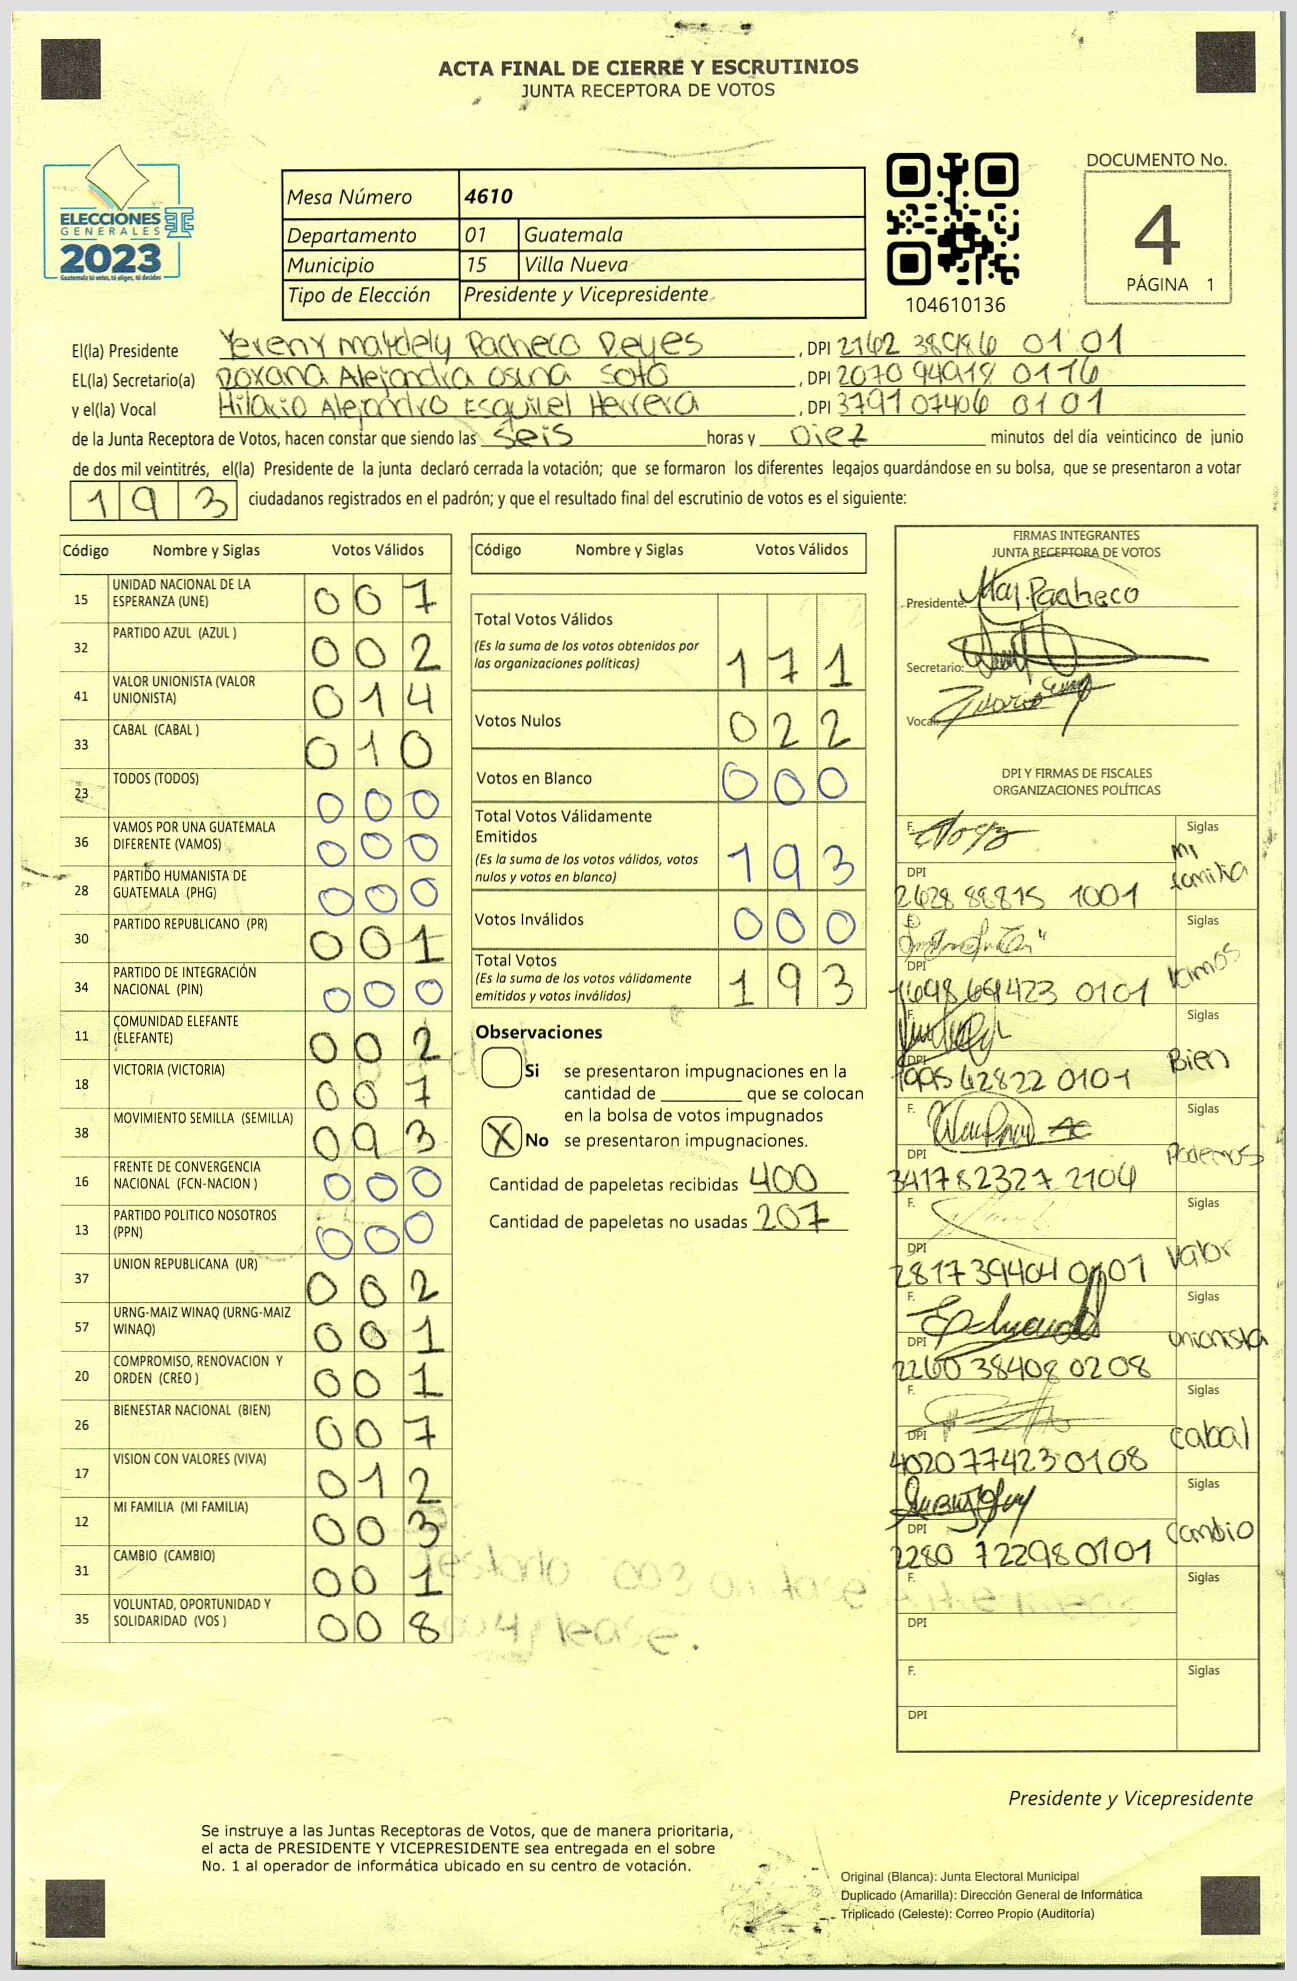 ACTA FINAL DE CIERRE Y ESCRUTINIOS
JUNTA RECEPTORA DE VOTOS
ELECCIONES
GENERALES
2023
Guatemala tú votas, tú eliges, tú decides
Mesa Número 4610
Departamento 01 Guatemala
Municipio 15 Villa Nueva
Tipo de Elección Presidente y Vicepresidente
104610136
DOCUMENTO No.
4
PÁGINA 1
El(la) Presidente Yereny Maydely Pacheco Reyes, DPI 2162 38986 01 01
EL(la) Secretario(a) Roxana Alejandra Osuna Soto, DPI 2070 94918 0116
y el(la) Vocal Hilario Alejandro Esquivel Herrera, DPI 3791 07406 0101
de la Junta Receptora de Votos, hacen constar que siendo las Seis horas y Diez minutos del día veinticinco de junio
de dos mil veintitrés, el(la) Presidente de la junta declaró cerrada la votación; que se formaron los diferentes legajos guardándose en su bolsa, que se presentaron a votar
193 ciudadanos registrados en el padrón; y que el resultado final del escrutinio de votos es el siguiente:
Código Nombre y Siglas Votos Válidos
15 UNIDAD NACIONAL DE LA ESPERANZA (UNE) 007
32 PARTIDO AZUL (AZUL ) 002
41 VALOR UNIONISTA (VALOR UNIONISTA) 014
33 CABAL (CABAL ) 010
23 TODOS (TODOS) 000
36 VAMOS POR UNA GUATEMALA DIFERENTE (VAMOS) 000
28 PARTIDO HUMANISTA DE GUATEMALA (PHG) 000
30 PARTIDO REPUBLICANO (PR) 001
34 PARTIDO DE INTEGRACIÓN NACIONAL (PIN) 000
11 COMUNIDAD ELEFANTE (ELEFANTE) 002
18 VICTORIA (VICTORIA) 007
38 MOVIMIENTO SEMILLA (SEMILLA) 093
16 FRENTE DE CONVERGENCIA NACIONAL (FCN-NACION ) 000
13 PARTIDO POLITICO NOSOTROS (PPN) 000
37 UNION REPUBLICANA (UR) 002
57 URNG-MAIZ WINAQ (URNG-MAIZ WINAQ) 001
20 COMPROMISO, RENOVACION Y ORDEN (CREO ) 001
26 BIENESTAR NACIONAL (BIEN) 007
17 VISION CON VALORES (VIVA) 012
12 MI FAMILIA (MI FAMILIA) 003
31 CAMBIO (CAMBIO) 001
35 VOLUNTAD, OPORTUNIDAD Y SOLIDARIDAD (VOS ) 008
Código Nombre y Siglas Votos Válidos
Total Votos Válidos
(Es la suma de los votos obtenidos por
las organizaciones políticas) 171
Votos Nulos 022
Votos en Blanco 000
Total Votos Válidamente
Emitidos
(Es la suma de los votos válidos, votos
nulos y votos en blanco) 193
Votos Inválidos 000
Total Votos
(Es la suma de los votos válidamente
emitidos y votos inválidos) 193
Observaciones
Si se presentaron impugnaciones en la
cantidad de ________ que se colocan
en la bolsa de votos impugnados
X No se presentaron impugnaciones.
Cantidad de papeletas recibidas 400
Cantidad de papeletas no usadas 207
003
004 please.
FIRMAS INTEGRANTES
JUNTA RECEPTORA DE VOTOS
Presidente: May. Pacheco
Secretario:
Vocal:
DPI Y FIRMAS DE FISCALES
ORGANIZACIONES POLÍTICAS
F. Siglas
mi familia
DPI 2628 88815 1001
F. Siglas
Vamos
DPI 1698 69423 0101
F. Siglas
Bien
DPI 1995 42822 0101
F. Siglas
Podemos
DPI 3417 82327 2104
F. Siglas
Valor
DPI 2817 39404 0101
F. Siglas
unionista
DPI 2260 38408 0208
F. Siglas
Cabal
DPI 4020 77423 0108
F. Siglas
Cambio
DPI 2280 72298 0101
F. Siglas
DPI
F. Siglas
DPI
Presidente y Vicepresidente
Se instruye a las Juntas Receptoras de Votos, que de manera prioritaria,
el acta de PRESIDENTE Y VICEPRESIDENTE sea entregada en el sobre
No. 1 al operador de informática ubicado en su centro de votación.
Original (Blanca): Junta Electoral Municipal
Duplicado (Amarilla): Dirección General de Informática
Triplicado (Celeste): Correo Propio (Auditoría)